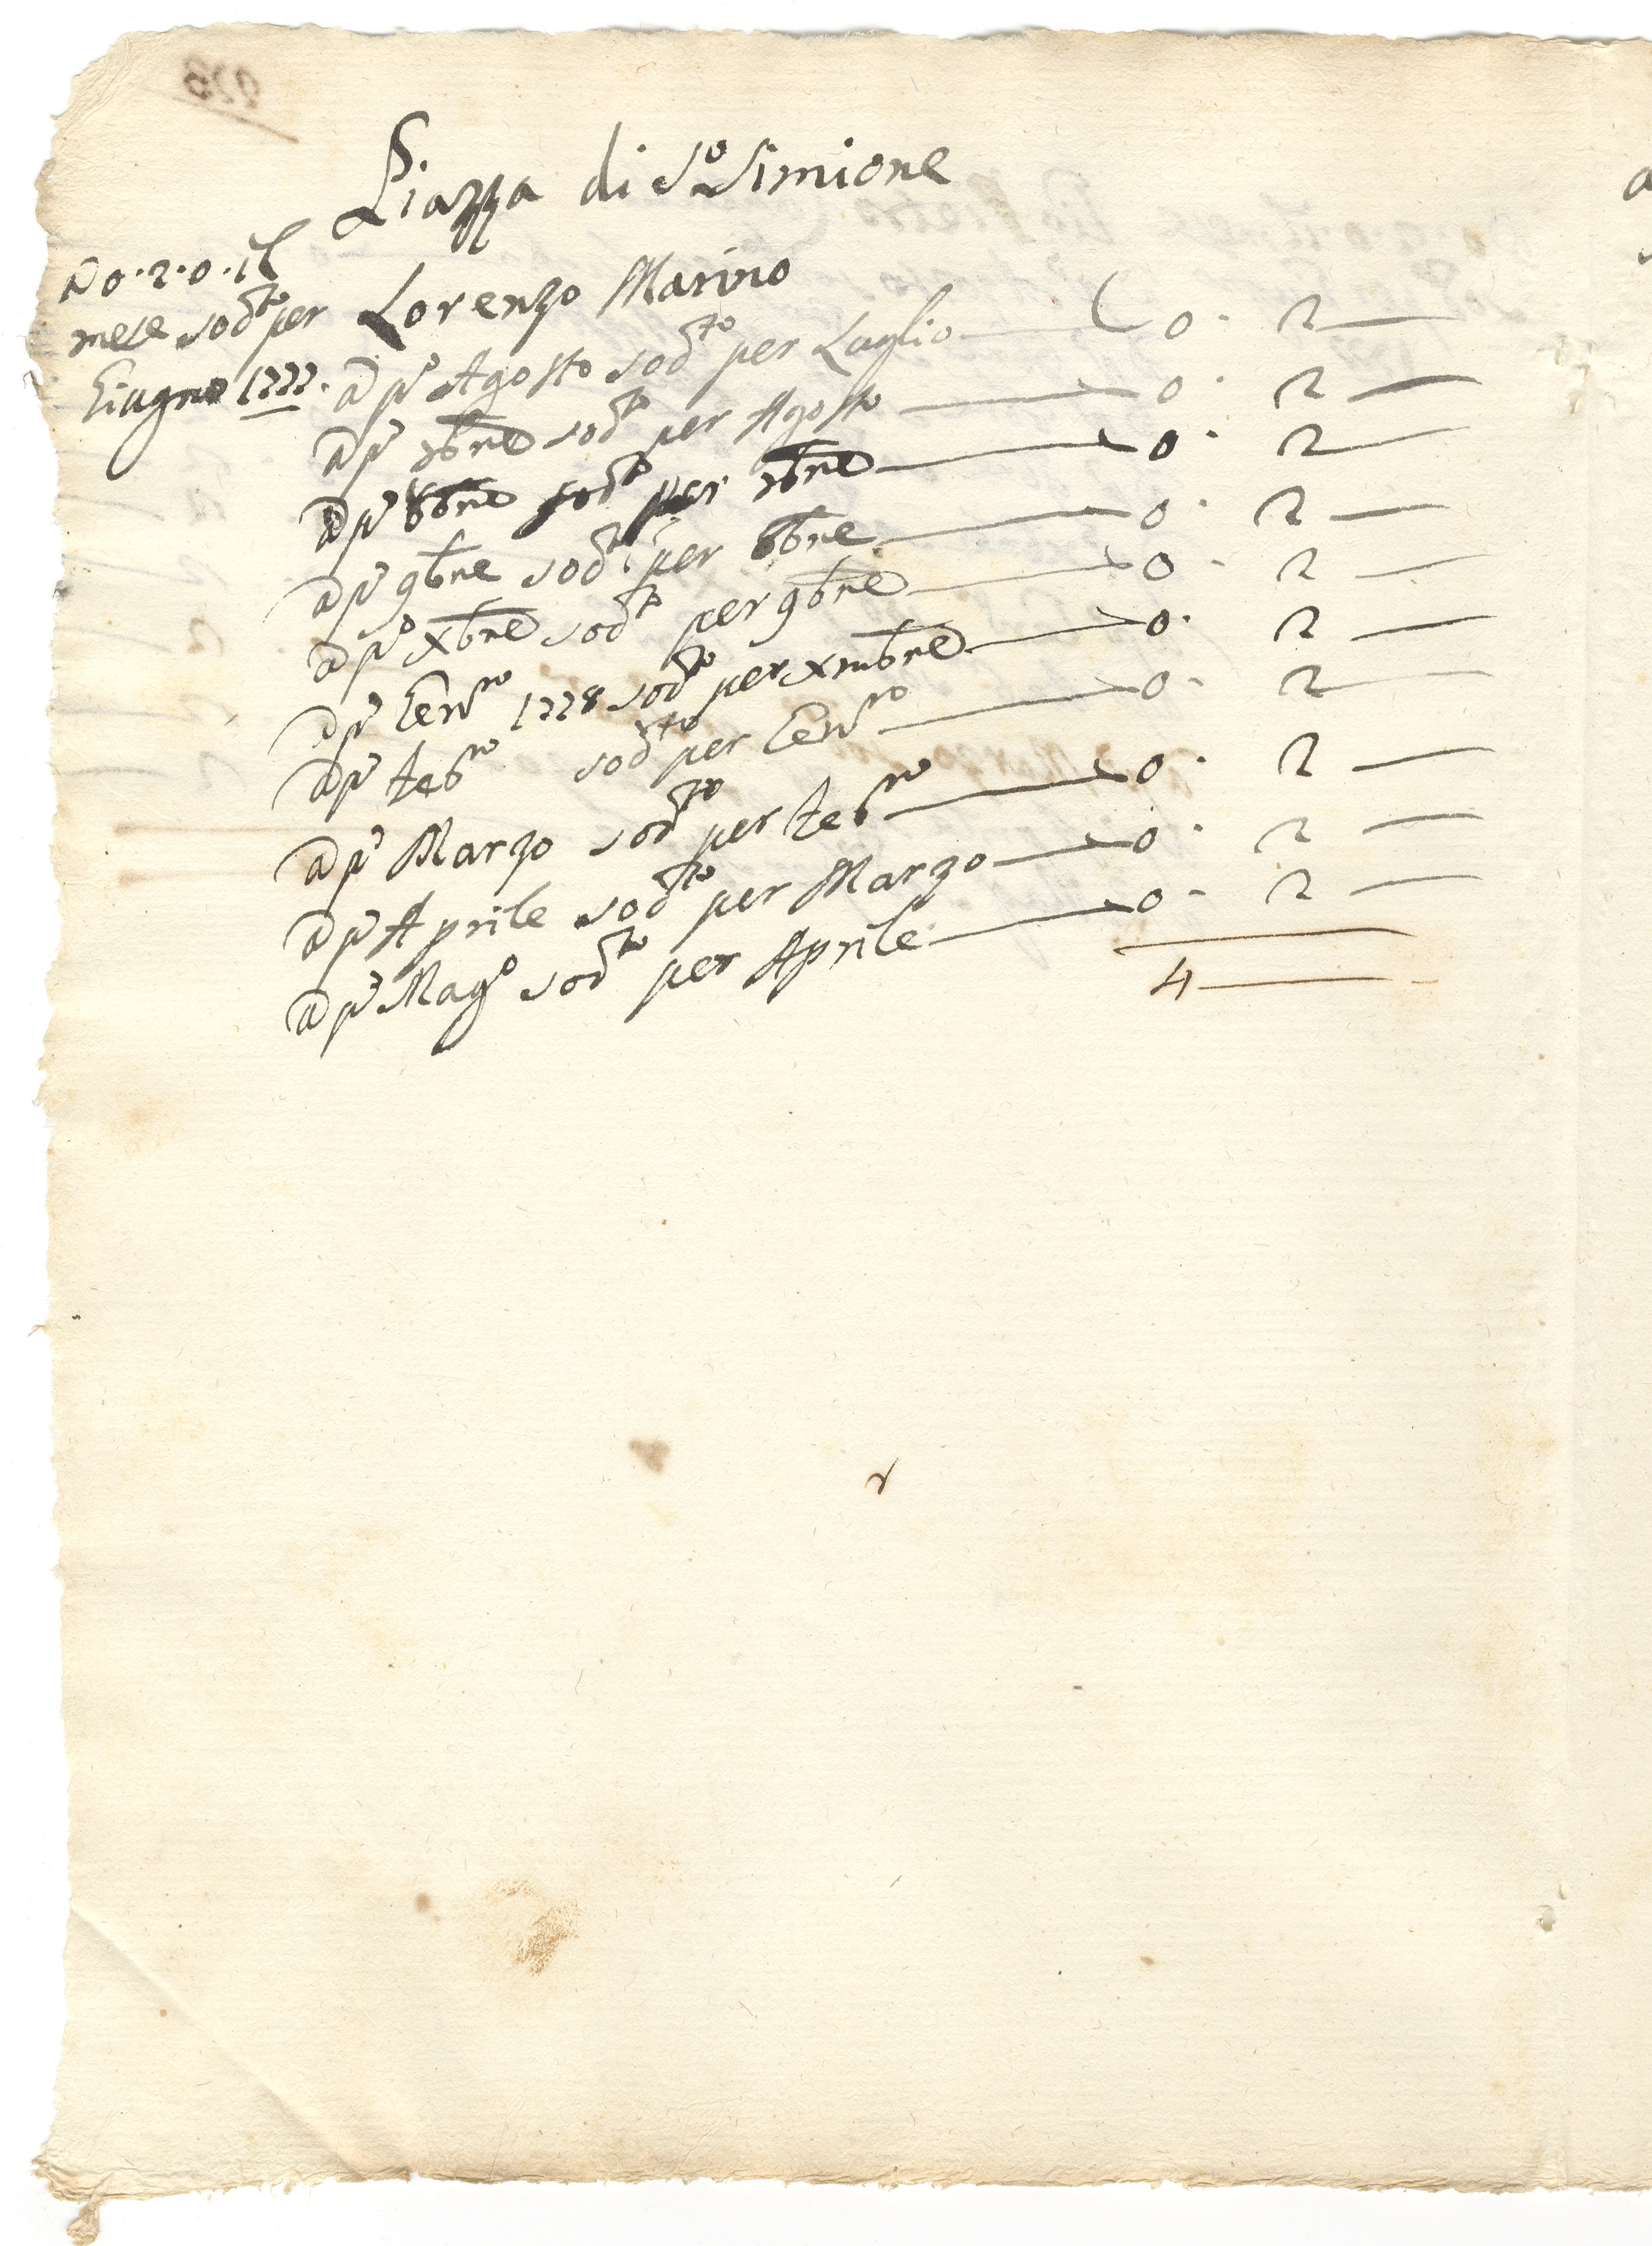 P.
Piazza di Sº Simione
a 0. 2. 0. il
mese sodto per
Giugno 1777.
Lorenzo Marino
a pº Agosto sodto per Luglio 0. 2
a pº 7bre sodto per Agosto 0. 2
a pº 8bre sodto per 7bre 0. 2
a pº 9bre sodto per 8bre 0. 2
a pº Xbre sodto per 9bre 0. 2
a pº Genro 1778 sodto per Xmbre 0. 2
a pº febro sodto per Genro 0. 2
a pº Marzo sodto per febro 0. 2
a pº Aprile sodto per Marzo 0. 2
a pº Magº sodto per Aprile 0. 2
4